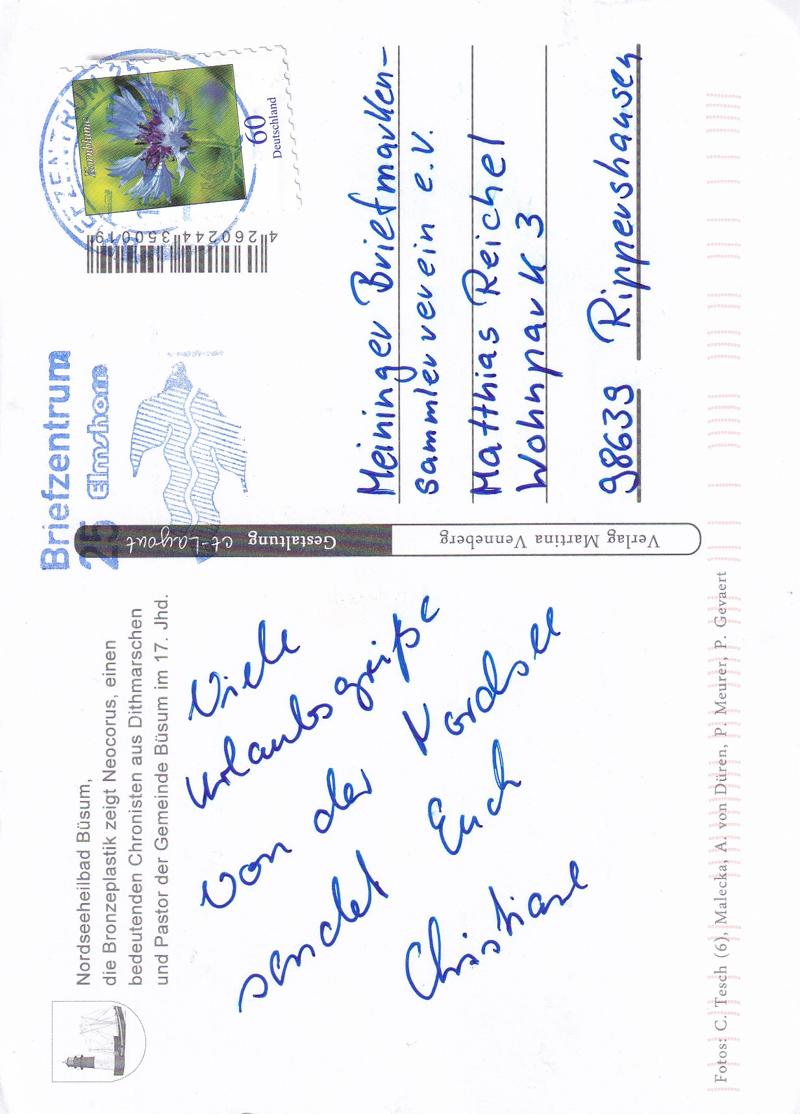 Nordseeheilbad Büsum,
die Bronzeplastik zeigt Neocorus, einen
bedeutenden Chronisten aus Dithmarschen
und Pastor der Gemeinde Büsum im 17. Jhd.
Viele
Urlaubsgrüße
von der Nordsee
sendet Euch
Christiane
Briefzentrum
25 Elmshorn
Kornblume
60
Deutschland
4260244350019
Gestaltung ct-Layout
Verlag Martina Venneberg
Meininger Briefmarken-
sammlerverein e.V.
Matthias Reichel
Wohnpark 3
98639 Rippershausen
Fotos: C. Tesch (6), Malecka, A. von Düren, P. Meurer, P. Gevaert